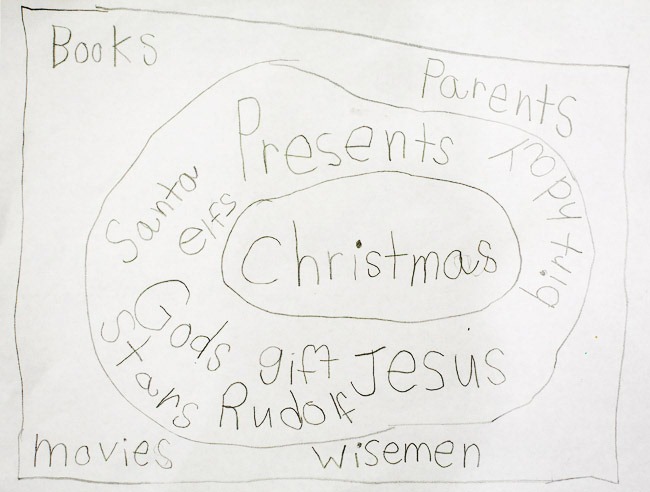 Books
Parents
Presents
Santa
elfs
Christmas
Gods gift
Jesus
Stars
Rudolf
movies
wisemen